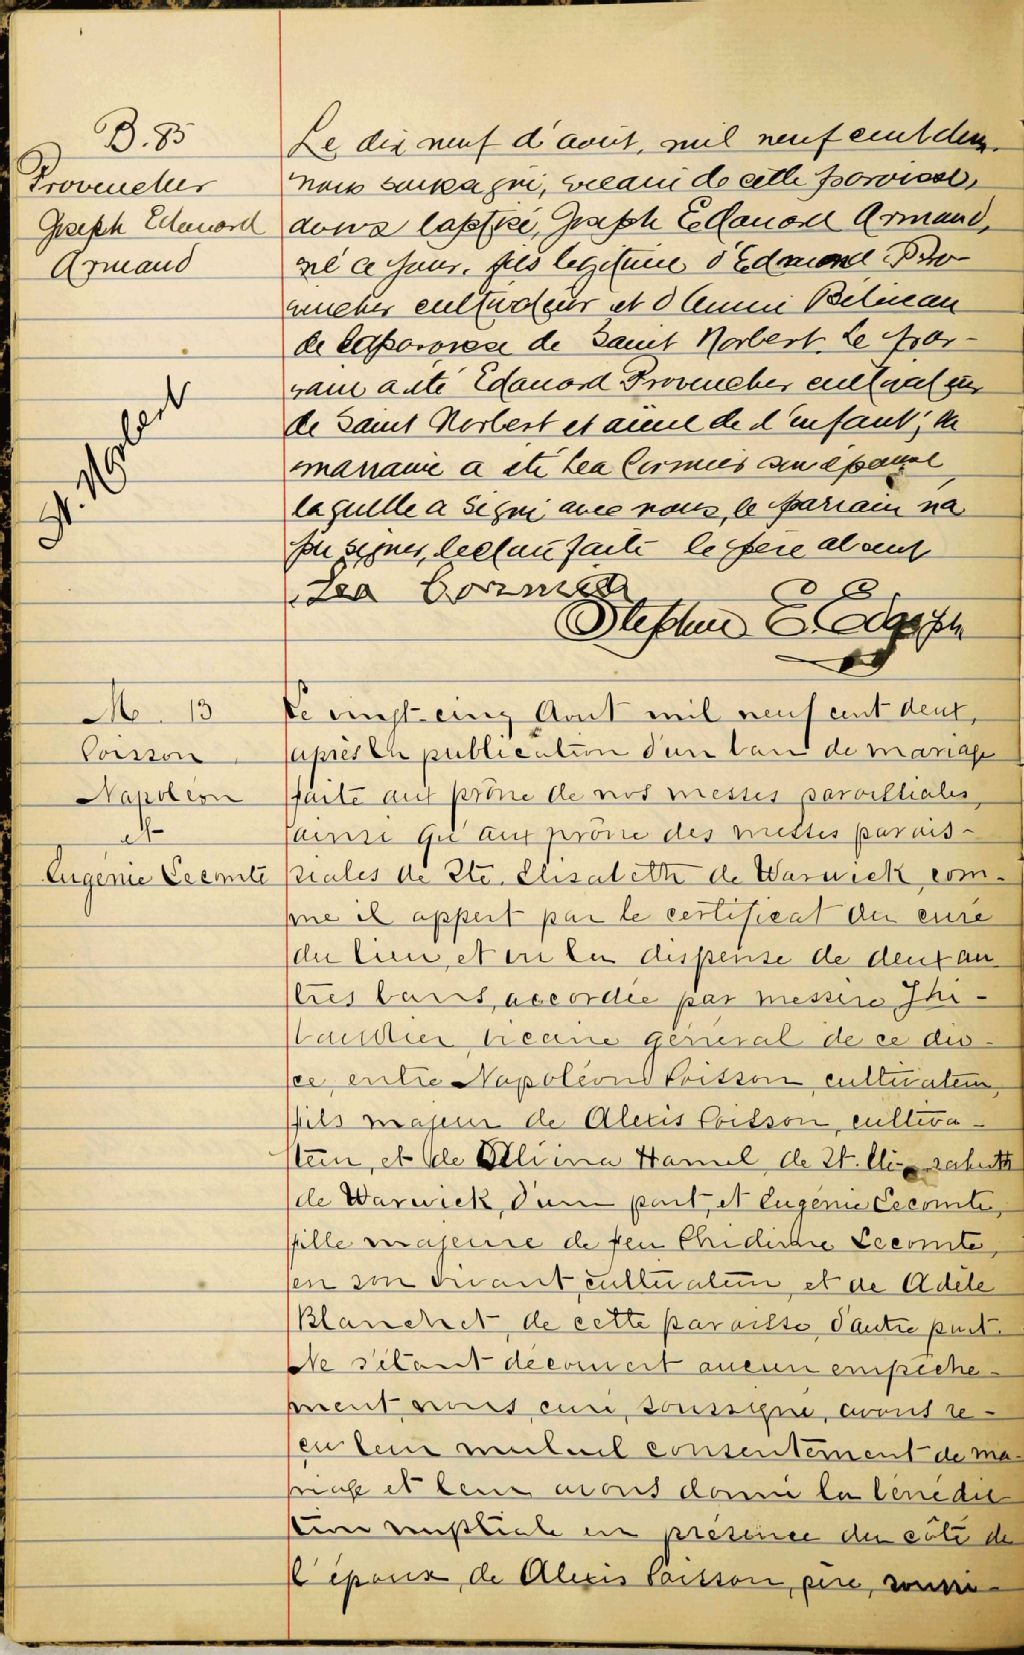 B. 85
Provencher
Joseph Edouard
Armand
St. Norbert
Le dix neuf d'août, mil neuf cent deux.
nous soussigné, vicaire de cette paroisse,
avons baptisé, Joseph Edouard Armand,
né ce jour, fils légitime d'Edmond Pro-
vencher cultivateur et d'Annie Béliveau
de la paroisse de Saint Norbert. Le par-
rain a été Edouard Provencher cultivateur
de Saint Norbert et aïeul de l'enfant; la
marraine a été Lea Cormier son épouse
laquelle a signé avec nous, le parrain n'a
pu signer, lecture faite le père absent
Lea Cormier
Stephen E.
M. 13
Poisson
Napoléon
et
Eugénie Lecomte
Le vingt-cinq Aout mil neuf cent deux,
après la publication d'un ban de mariage
faite aux prône de nos messes paroissiales,
ainsi qu'aux prône des messes parois-
siales de Ste. Elisabeth de Warwick, com-
me il appert par le certificat du curé
du lieu, et vu la dispense de deux au
tres bans, accordée par messire Thi-
baudier, vicaire général de ce dio-
ce, entre Napoléon Poisson, cultivateur,
fils majeur de Alexis Poisson, cultiva-
teur, et de Olivina Hamel, de St. Eli-sabeth
de Warwick, d'une part, et Eugénie Lecomte,
fille majeure de feu Phidime Lecomte,
en son vivant, cultivateur, et de Adèle
Blanchet, de cette paroisse, d'autre part.
Ne s'étant découvert aucun empêche-
ment, nous, curé, soussigné, avons re-
çu leur mutuel consentement de ma-
riage et leur avons donné la bénédic
tion nuptiale en présence du côté de
l'époux, de Alexis Poisson, père, soussi-